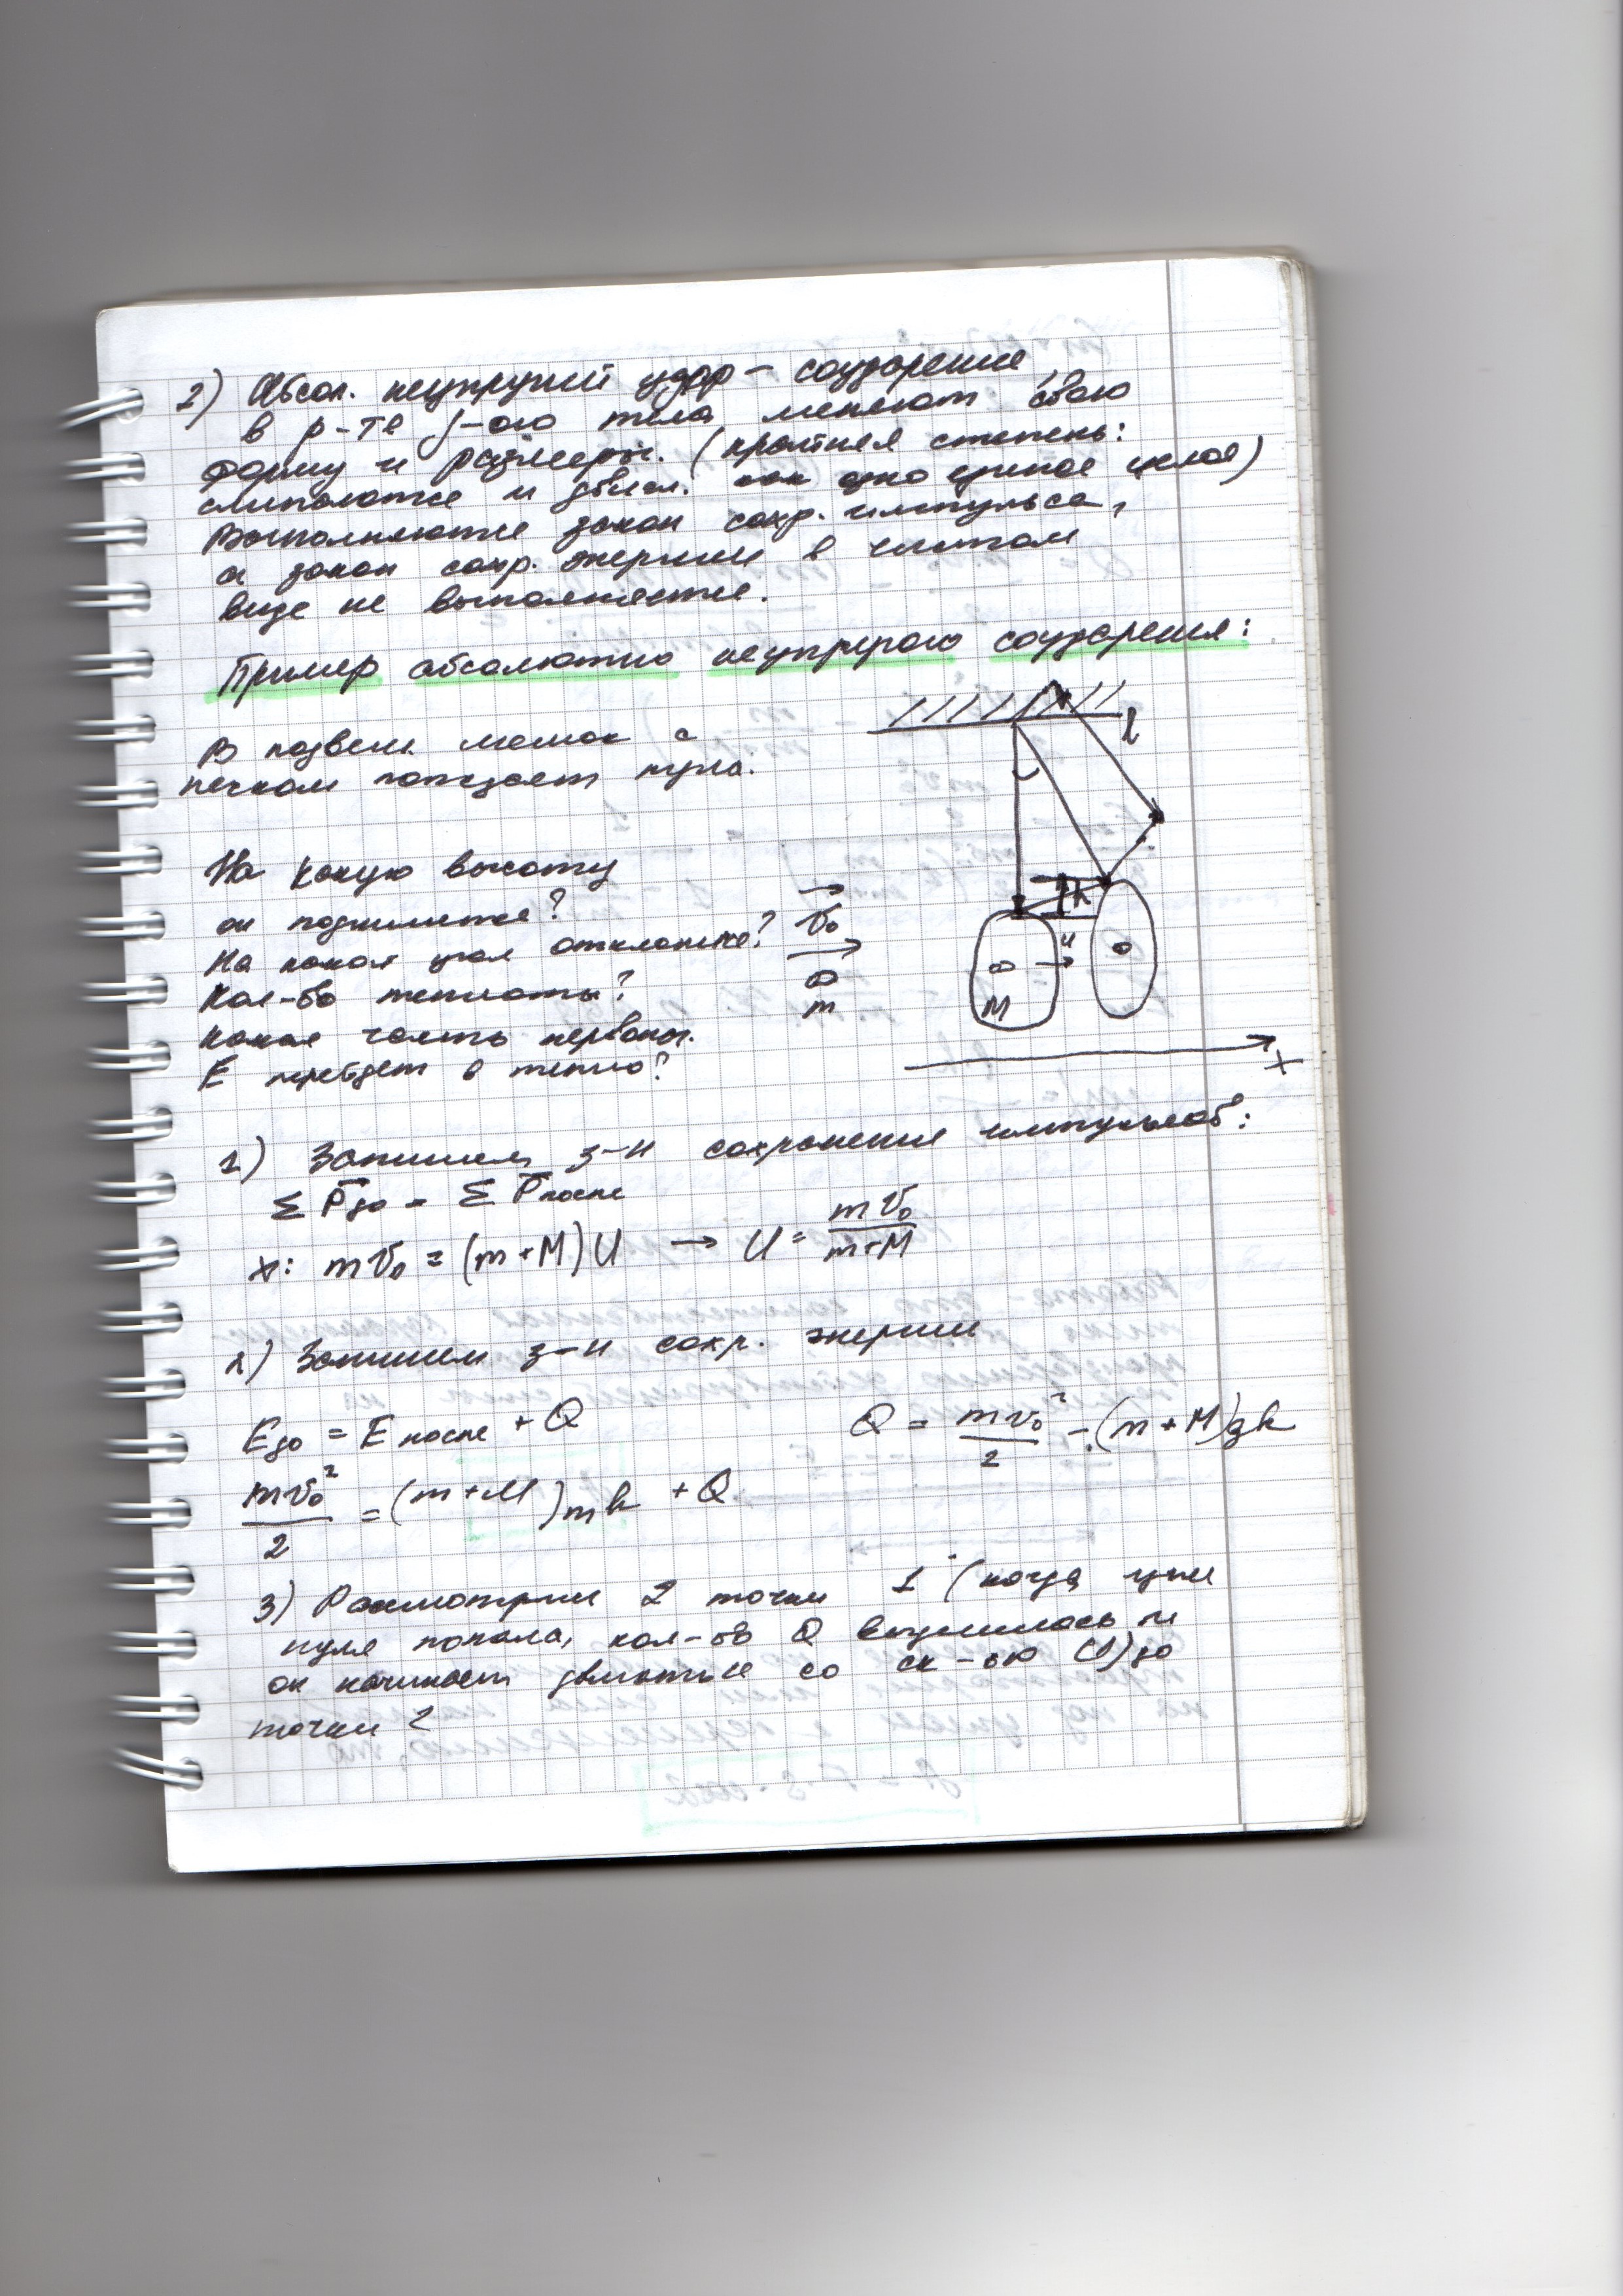 2) Абсол. неупругий удар - соударение,
в р-те к-ого тела меняют свою
форму и размеры. (крайняя степень:
слипаются и движ. как одно единое целое)
Выполняется закон сохр. импульса,
а закон сохр. энергии в чистом
виде не выполняется.
Пример абсолютно неупругого соударения:
В подвеш. мешок с
песком попадает пуля.
l
На какую высоту
он поднимется?
На какой угол отклонится?
Кол-во теплоты?
Какая часть первонач.
E перейдет в тепло?
h
V₀
u
m
M
x
1) Запишем з-н сохранения импульсов:
Σ P до = Σ P после
x: mV₀ = (m+M)U → U = mV₀/(m+M)
2) Запишем з-н сохр. энергии
E до = E после + Q
Q = mv₀²/2 - (m+M)gh
mv₀²/2 = (m+M)mh + Q
3) Рассмотрим 2 точки 1 (когда уже
пуля попала, кол-во Q выделилось и
он начинает двигаться со ск-ью U) до
точки 2